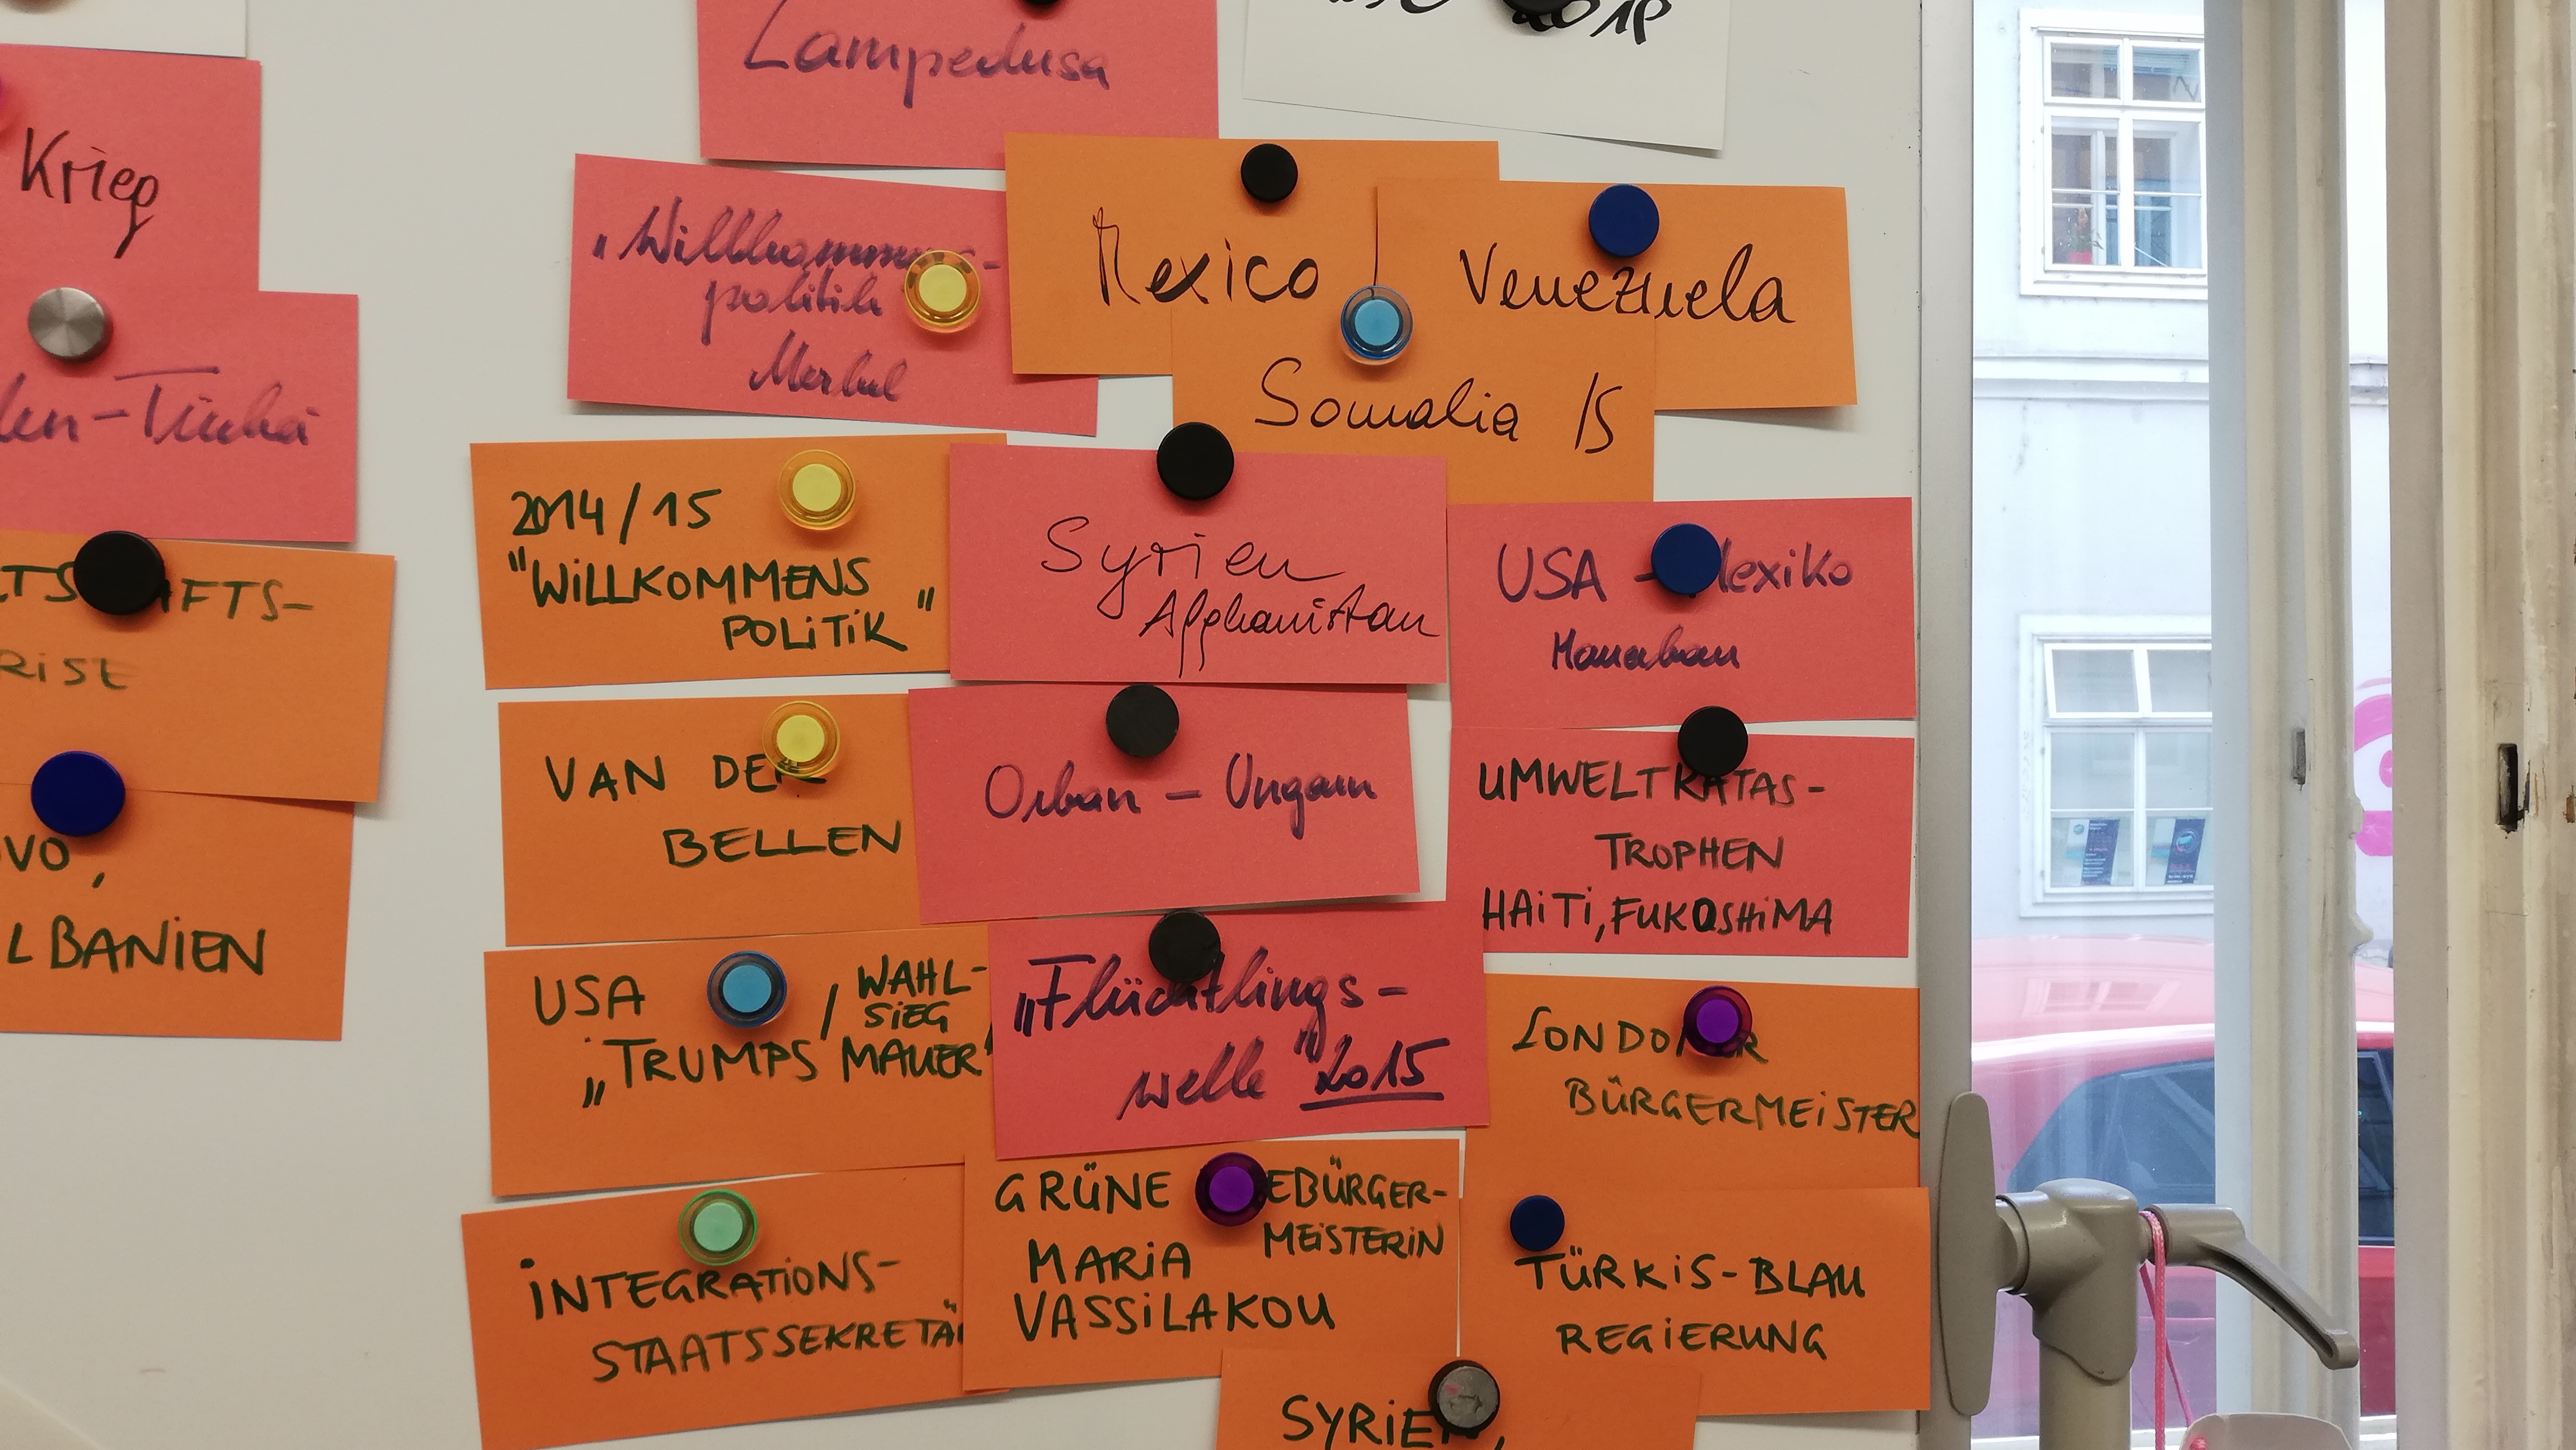 Krieg
RISE
LBANIEN
Lampedusa
2018
"Willkommens-
politik
Merkel
Mexico
Venezuela
Somalia IS
2014/15
"WILLKOMMENS
POLITIK"
Syrien
Afghanistan
USA - Mexiko
Mauerbau
VAN DER
BELLEN
Orban - Ungarn
UMWELTKATAS-
TROPHEN
HAITI, FUKOSHIMA
USA / WAHL-
SIEG
„TRUMPS MAUER"
„Flüchtlings-
welle" 2015
LONDONER
BÜRGERMEISTER
INTEGRATIONS-
STAATSSEKRETÄ
GRÜNE EBÜRGER-
MEISTERIN
MARIA
VASSILAKOU
TÜRKIS-BLAU
REGIERUNG
SYRIEN,